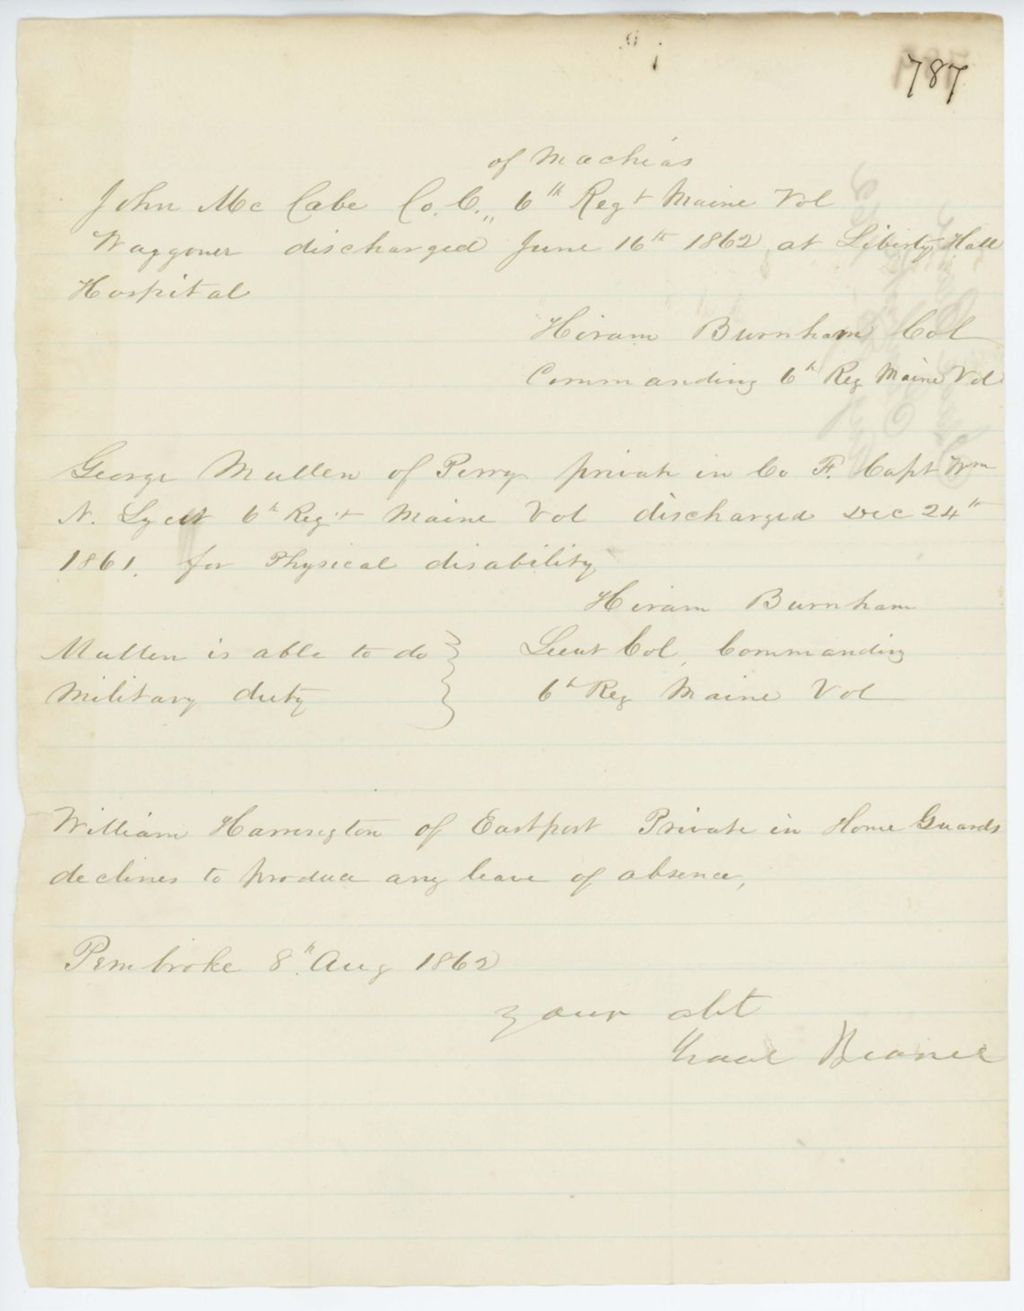 787
of Machias
John Mc Cabe Co. C. 6th Regt Maine Vol
Waggoner discharged June 16th 1862, at Liberty Hall
Hospital
Hiram Burnham Col
Commanding 6th Reg Maine Vol
George Mullen of Perry private in Co F. Capt Wm
N. 6th Reg't Maine Vol discharged Dec 24th
1861. for Physical disability
Hiram Burnham
Mullen is able to do
Lieut Col, Commanding
military duty
6th Reg Maine Vol
William Harrington of Eastport Private in Home Guards
declines to produce any leave of absence,
Pembroke 8th Aug 1862
your obt
Isaac